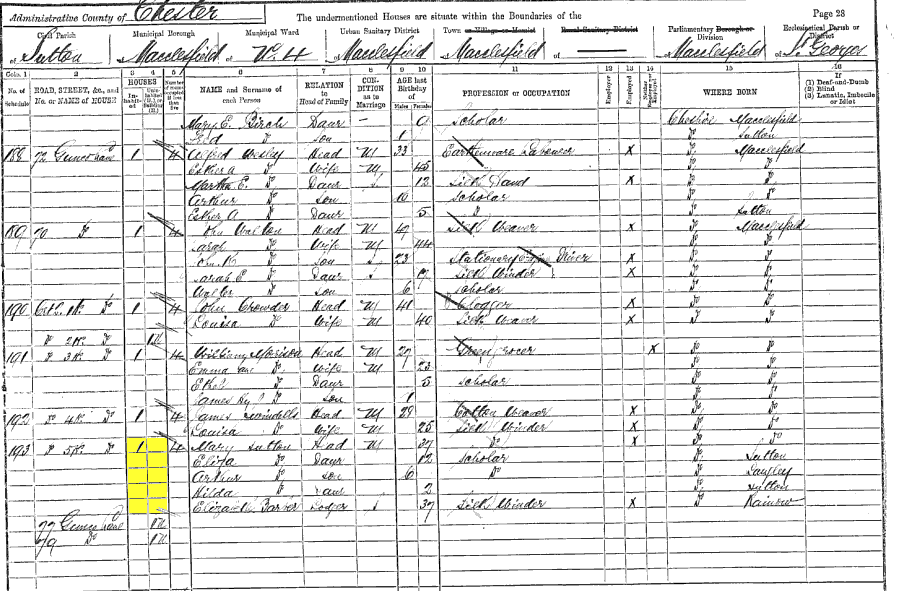 Administrative County of Chester The undermentioned Houses are situate within the Boundaries of the Page 28
Civil Parish Municipal Borough Municipal Ward Urban Sanitary District Town or Village or Hamlet Rural Sanitary District Parliamentary Borough or Division Ecclesiastical Parish or District
of Sutton of Macclesfield of of Macclesfield of Macclesfield of of Macclesfield of St. Georges
Cols. 1 2 3 4 5 6 7 8 9 10 11 12 13 14 15 16
No. of Schedule ROAD, STREET, &c., and No. or NAME of HOUSE HOUSES Inhabited Uninhabited (U.), or Building (B.) Number of rooms occupied if less than five NAME and Surname of each Person RELATION to Head of Family CONDITION as to Marriage AGE last Birthday of Males Females PROFESSION or OCCUPATION Employer Employed Neither Employer nor Employed WHERE BORN If (1) Deaf-and-Dumb (2) Blind (3) Lunatic, Imbecile or Idiot
Mary E. Birch Daur - 9 Scholar Cheshire Macclesfield
Fred Do Son 1 Do Sutton
188 72 Gunco Lane 1 4 Alfred Wesley Head M 33 Earthenware Labourer X Do Macclesfield
Esther A Do Wife M 45 Do Do
Martha E. Do Daur S 12 Silk Hand X Do Do
Arthur Do Son 10 Scholar Do Do
Esther A Do Daur 5 Do Do Sutton
189 70 Do 1 4 John Walton Head M 47 Silk Weaver X Do Macclesfield
Sarah Do Wife M 44 Do Do
John Do Son S 23 Stationary Engine Driver X Do Do
Sarah E Do Daur S Silk Winder X Do Do
Walter Do Son 6 Scholar Do Do
190 1 4 John Crowder Head M 41 Clogger X Do Do
Louisa Do Wife M 40 Silk Weaver X Do Do
Do 2 Do
191 Do 3 Do 1 4 William Morrison Head M 27 Green Grocer X Do Do
Emma Do Wife M 23 Do Do
Ethel Do Daur 5 Scholar Do Do
James Hy Do Son 1 Do Do
192 Do 4 Do 1 4 James Swindells Head M 28 Cotton Weaver X Do Do
Louisa Do Wife M 25 Silk Winder X Do Do
193 Do 5 Do 1 4 Mary Sutton Head M 37 Do X Do Do
Eliza Do Daur 12 Scholar Do Sutton
Arthur Do Son 6 Do Do Langley
Hilda Do Daur 2 Do Sutton
Elizabeth Barber Lodger S 37 Silk Winder X Do Rainow
77 Gunco Lane 1U
79 Do 1U